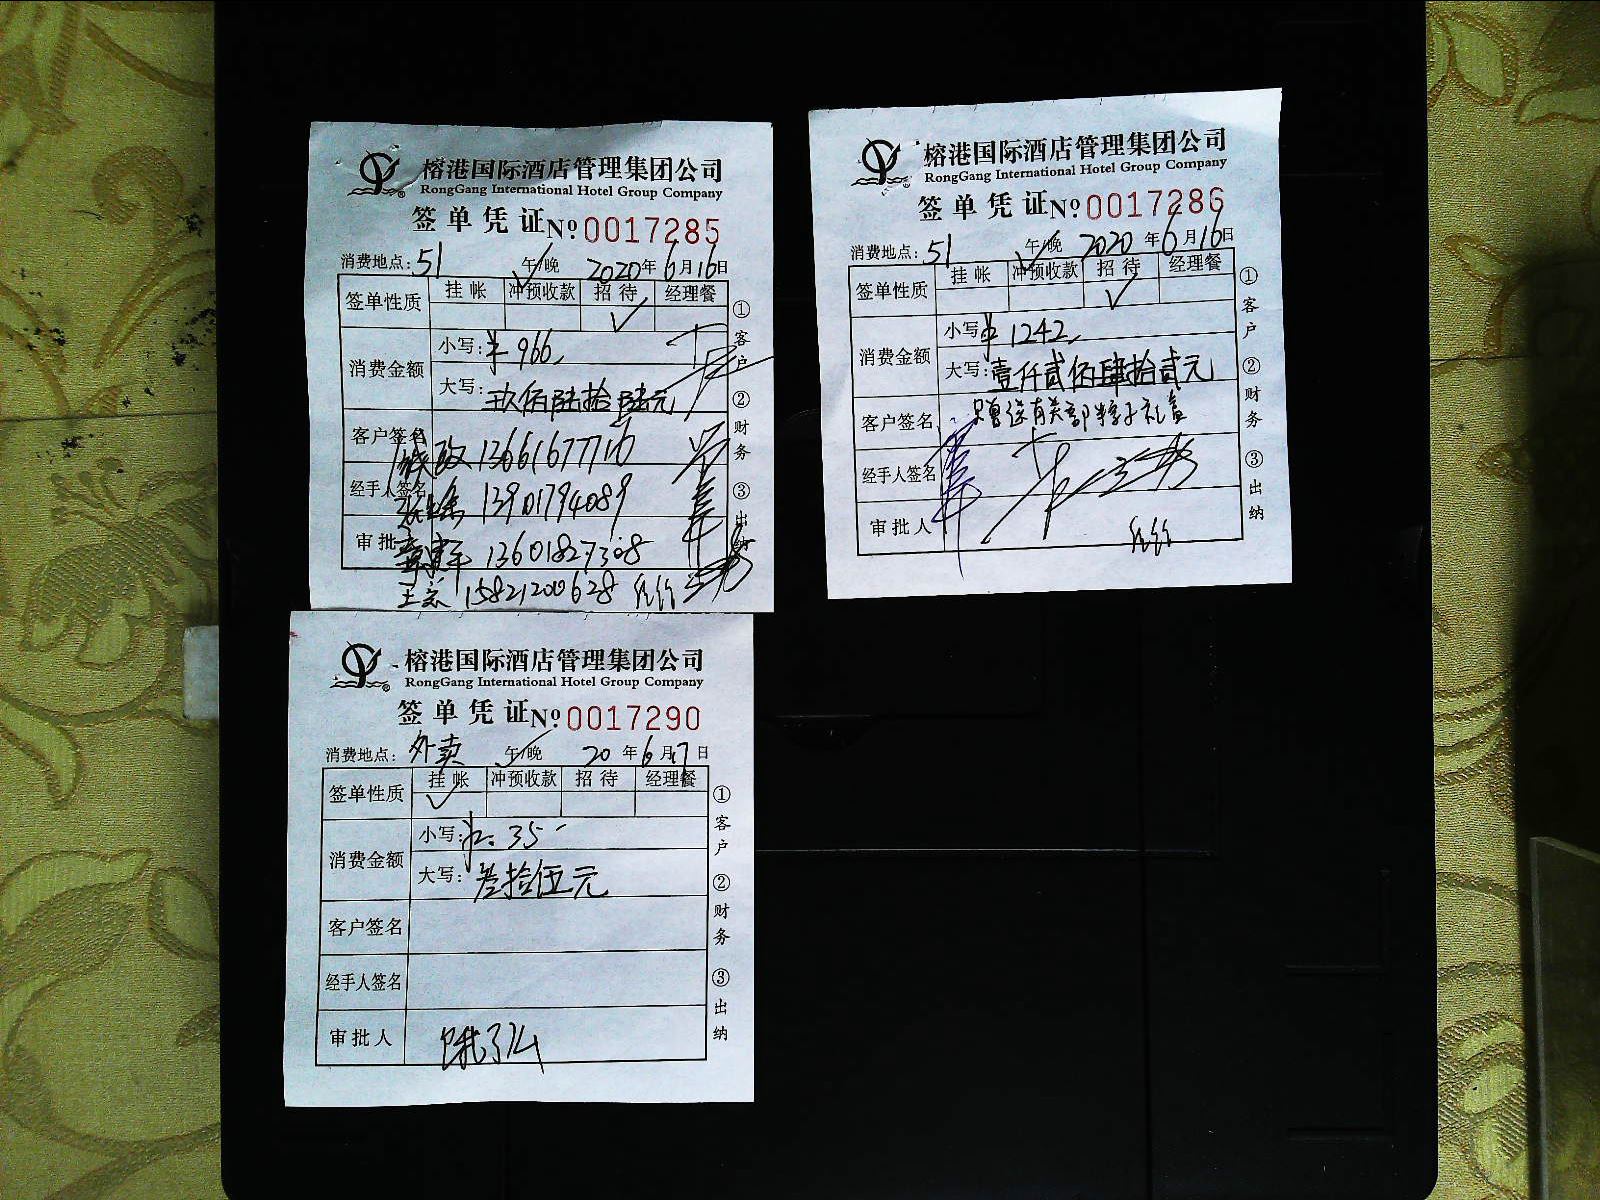 榕港国际酒店管理集团公司
RongGang International Hotel Group Company
签单凭证 Nº 0017285
消费地点: 51 午/晚 2020年6月16日
签单性质 挂帐 冲预收款 招待 经理餐
✓
消费金额 小写: ¥966
大写: 玖佰陆拾陆元
客户签名 政 13661677716
经手人签名 13901794089
审批 13601827308
王 15821200628
①客户 ②财务 ③出纳
榕港国际酒店管理集团公司
RongGang International Hotel Group Company
签单凭证 Nº 0017286
消费地点: 51 午/晚 2020年6月16日
签单性质 挂帐 冲预收款 招待 经理餐
✓
消费金额 小写 ¥1242
大写: 壹仟贰佰肆拾贰元
客户签名 赠送有关部 粽子礼盒
经手人签名
审批人
①客户 ②财务 ③出纳
榕港国际酒店管理集团公司
RongGang International Hotel Group Company
签单凭证 Nº 0017290
消费地点: 外卖 午/晚 20年6月17日
签单性质 挂帐 冲预收款 招待 经理餐
✓
消费金额 小写: ¥: 35
大写: 叁拾伍元
客户签名
经手人签名
审批人 饿了么
①客户 ②财务 ③出纳